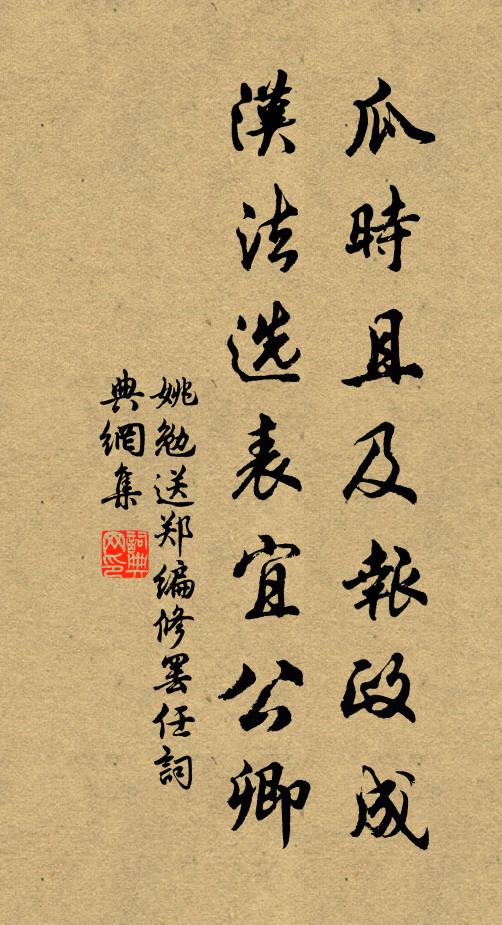 瓜時且及報政成
漢法选表宜公卿
姚勉送郑编修罢任詞
典網集
詞典
网印